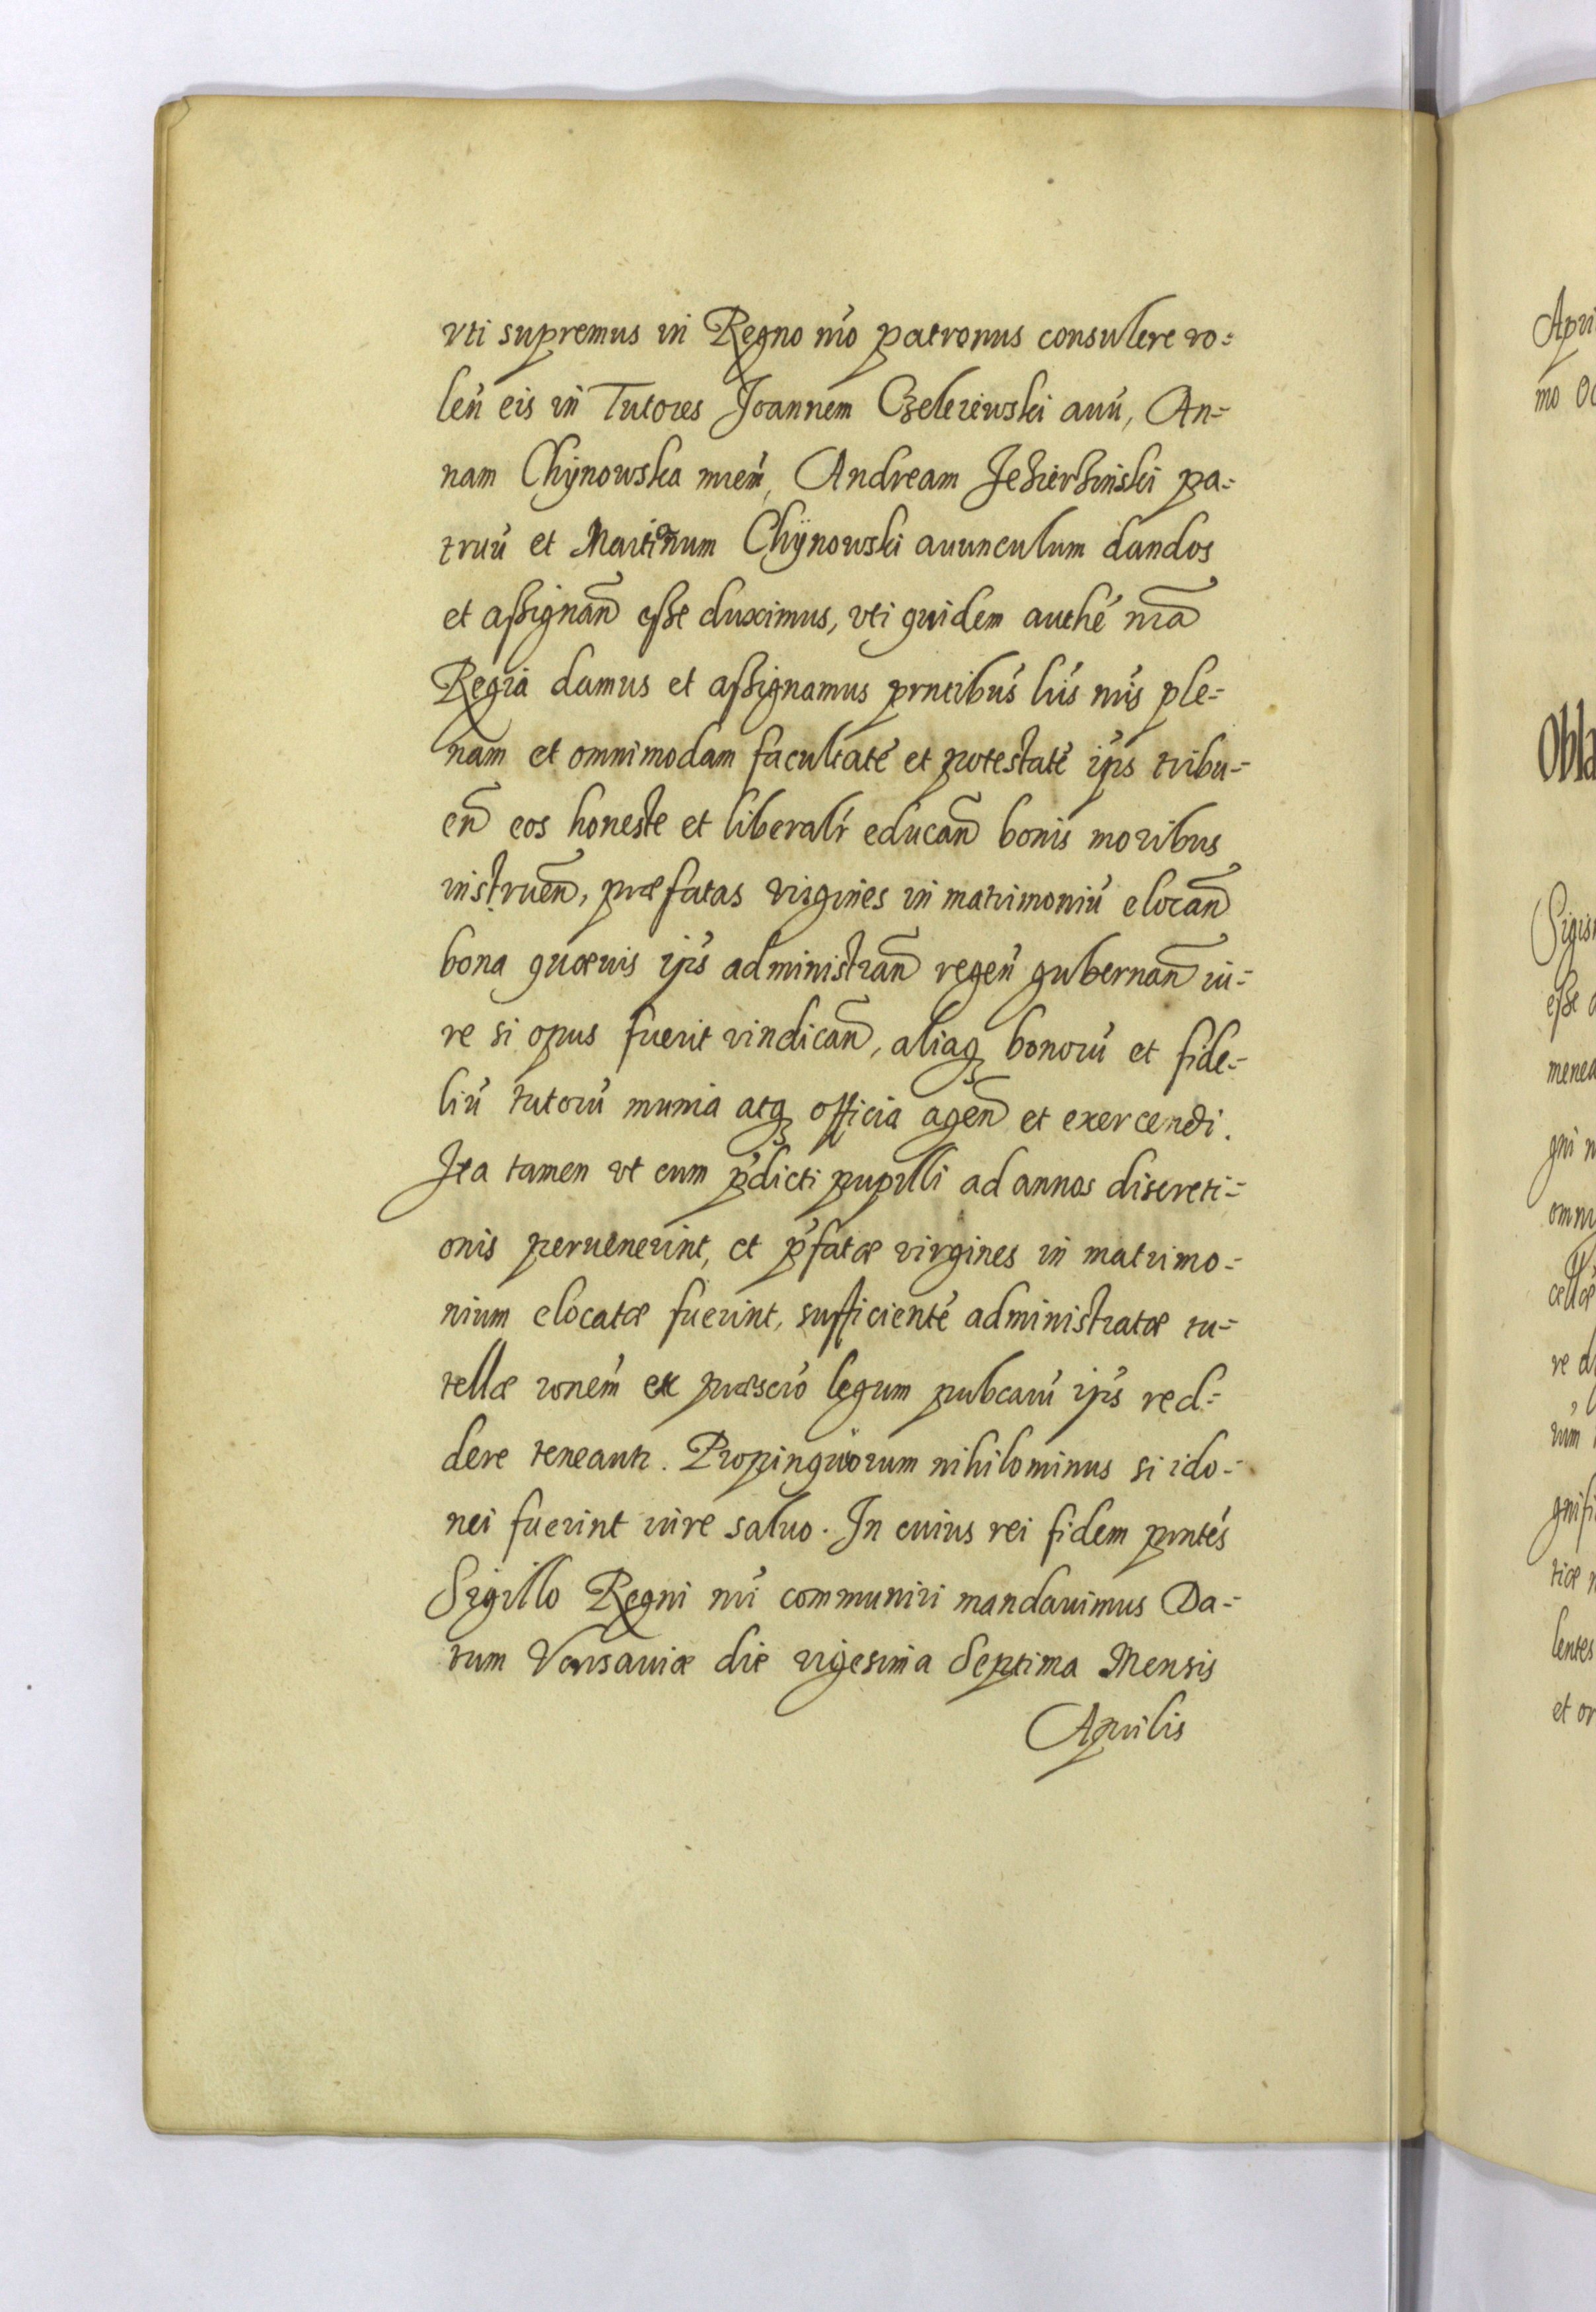 vti supremus in Regno nro patronus consulere vo=
len eis in Tutores Joannem Czeleiewski auu, An=
nam Chynowska mrem, Andream Jezierzinski pa=
truu et Martinum Chÿnowski auunculum dandos
et assignan esse duximus, vti quidem authe nra
Regia damus et assignamus prntibus lris nris ple=
nam et omnimodam facultate et potestate ips tribu=
en eos honeste et liberalr educan bonis moribus
instruen, præfatas virgines in matrimoniu elocan
bona quævis ips administran regen gubernan iu=
re si opus fuerit vindican, aliaq bonoru et fide=
liu tutoru munia atq officia agen et exercendi.
Ita tamen vt cum pdicti pupilli ad annos discreti=
onis peruenerint, et pfatæ virgines in matrimo=
nium elocatæ fuerint, sufficiente administratæ tu=
tellæ ronem ex præscro legum pubcaru ips red=
dere teneantr. Propinquorum nihilominus si ido=
nei fuerint iure saluo. In cuius rei fidem prntes
Sigillo Regni nri communiri mandauimus Da=
tum Varsauiæ die vigesima Septima Mensis
Aprilis